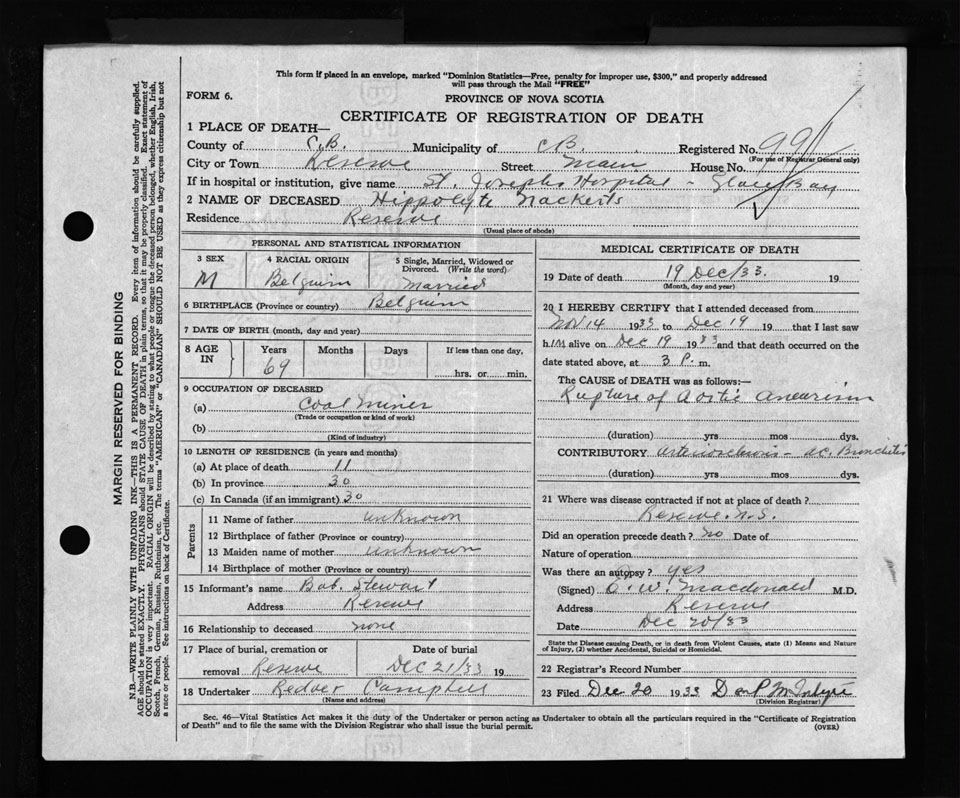 This form if placed in an envelope, marked "Dominion Statistics—Free, penalty for improper use, $300," and properly addressed
will pass through the Mail "FREE"
FORM 6.
PROVINCE OF NOVA SCOTIA
CERTIFICATE OF REGISTRATION OF DEATH
1 PLACE OF DEATH—
County of C.B. Municipality of C B Registered No. 991
(For use of Registrar General only)
City or Town Reserve Street Main House No.
If in hospital or institution, give name St. Josephs Hospital - Glace Bay
2 NAME OF DECEASED Hippolyte Nackerts
Residence Reserve
(Usual place of abode)
PERSONAL AND STATISTICAL INFORMATION
3 SEX 4 RACIAL ORIGIN 5 Single, Married, Widowed or Divorced. (Write the word)
M Belguim Married
6 BIRTHPLACE (Province or country) Belguim
7 DATE OF BIRTH (month, day and year)
8 AGE IN Years Months Days If less than one day,
69 hrs. or min.
9 OCCUPATION OF DECEASED
(a) Coal Miner
(Trade or occupation or kind of work)
(b)
(Kind of industry)
10 LENGTH OF RESIDENCE (in years and months)
(a) At place of death 11
(b) In province 30
(c) In Canada (if an immigrant) 30
Parents
11 Name of father unknown
12 Birthplace of father (Province or country)
13 Maiden name of mother unknown
14 Birthplace of mother (Province or Country)
15 Informant's name Bab. Stewart
Address Reserve
16 Relationship to deceased none
17 Place of burial, cremation or Date of burial
removal Reserve Dec 21/33 19
18 Undertaker Redver Campbell
(Name and address)
MEDICAL CERTIFICATE OF DEATH
19 Date of death 19 Dec/33. 19
(Month, day and year)
20 I HEREBY CERTIFY that I attended deceased from
Nov 14 1933 to Dec 19 19 that I last saw
h.IM alive on Dec 19 1933 and that death occurred on the
date stated above, at 3 P. m.
The CAUSE OF DEATH was as follows:—
Rupture of Aortic Aneurism
(duration) yrs mos dys.
CONTRIBUTORY Arteriosclerosis - ac. Bronchitis
(duration) yrs mos dys.
21 Where was disease contracted if not at place of death?
Reserve. N.S.
Did an operation precede death? no Date of
Nature of operation
Was there an autopsy? yes
(Signed) C. W. Macdonald M.D.
Address Reserve
Date Dec 20/33
State the Disease causing Death, or in death from Violent Causes, state (1) Means and Nature
of Injury, (2) whether Accidental, Suicidal or Homicidal.
22 Registrar's Record Number
23 Filed Dec. 20 1933 Dan P McIntyre
(Division Registrar)
Sec. 46—Vital Statistics Act makes it the duty of the Undertaker or person acting as Undertaker to obtain all the particulars required in the "Certificate of Registration
of Death" and to file the same with the Division Registrar who shall issue the burial permit. (OVER)
MARGIN RESERVED FOR BINDING
N.B.—WRITE PLAINLY WITH UNFADING INK—THIS IS A PERMANENT RECORD. Every item of information should be carefully supplied.
AGE should be stated EXACTLY. PHYSICIANS should STATE CAUSE OF DEATH in plain terms, so that it may be properly classified. Exact statement of
OCCUPATION is very important. RACIAL ORIGIN will be described by stating to what people or tongue the deceased person belonged, whether English, Irish,
Scotch, French, German, Russian, Ruthenian, etc. The terms "AMERICAN" or "CANADIAN" SHOULD NOT BE USED as they express citizenship but not
a race or people. See instructions on back of Certificate.